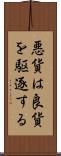 悪貨は良貨
を駆逐する